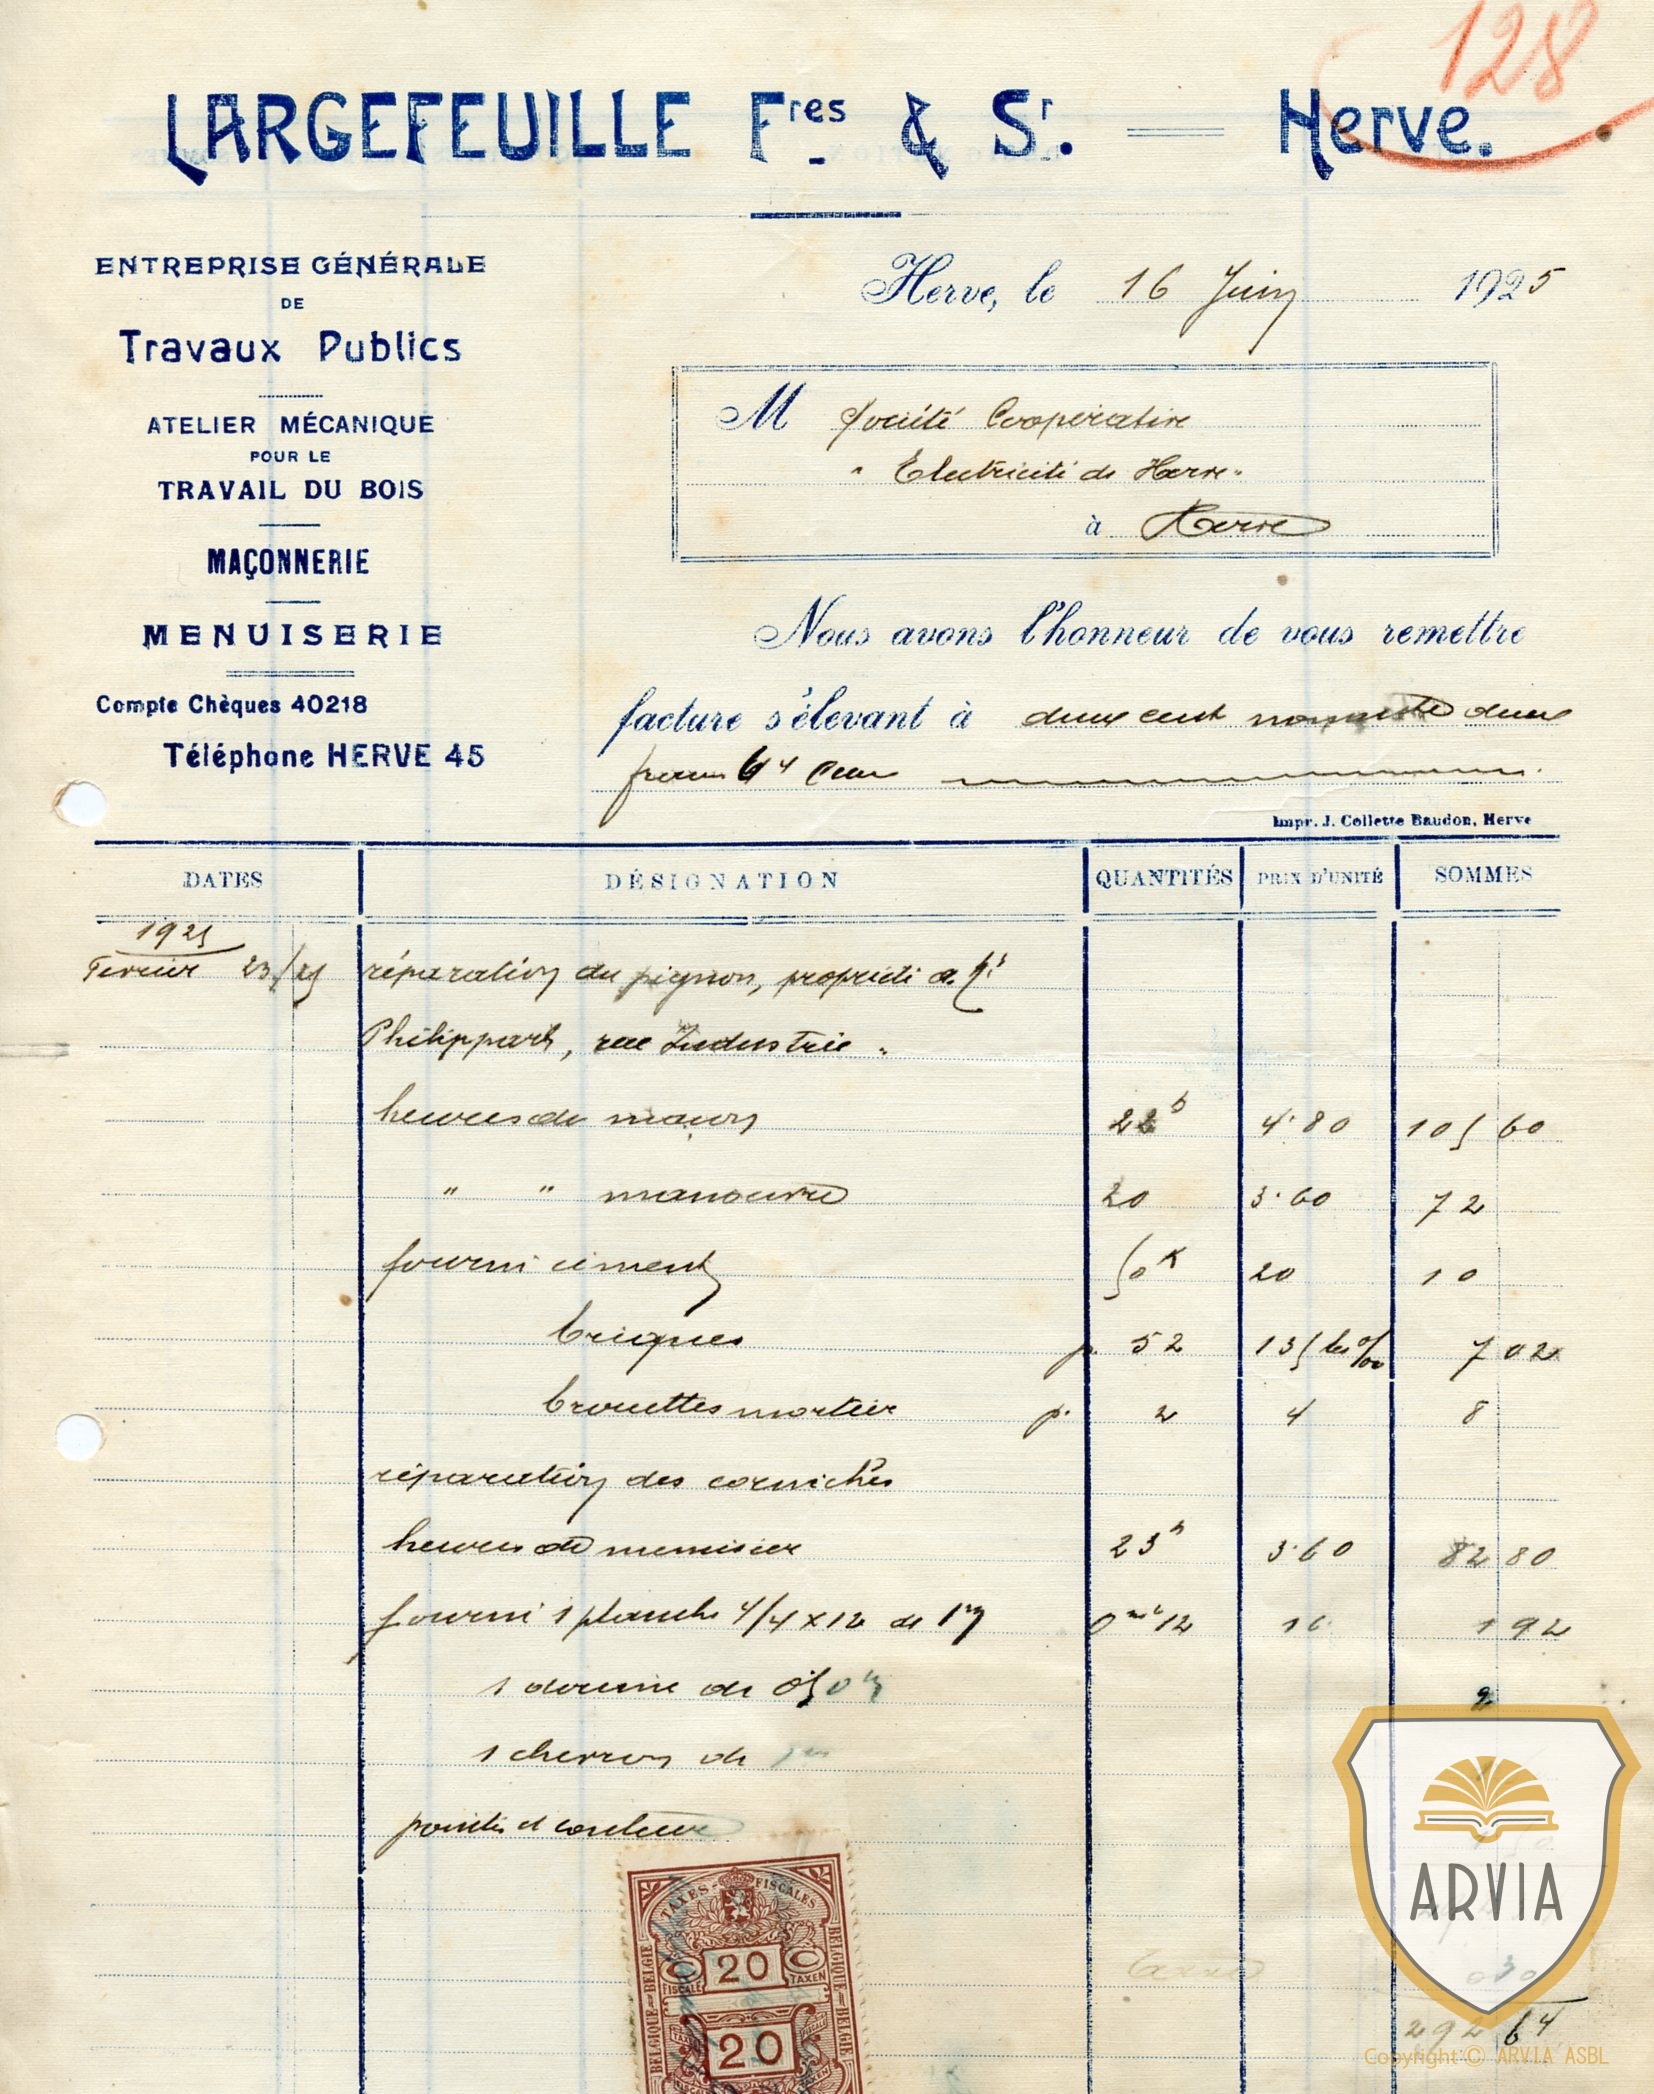 128
LARGEFEUILLE Fres & Sr. — Herve.
ENTREPRISE GÉNÉRALE
DE
Travaux Publics
ATELIER MÉCANIQUE
POUR LE
TRAVAIL DU BOIS
MAÇONNERIE
MENUISERIE
Compte Chèques 40218
Téléphone HERVE 45
Herve, le 16 Juin 1925
M Société Coopérative
"Electricité de Herve"
à Herve
Nous avons l'honneur de vous remettre
facture s'élevant à deux cent nonante deux
francs 64 Cent
Impr. J. Collette Baudon, Herve
DATES DÉSIGNATION QUANTITÉS PRIX D'UNITÉ SOMMES
1925
Fevrier 23/25 réparation du pignon, propriété de
Philippart, rue Industrie.
heures de maçon 22h 4.80 105 60
" " manoeuvre 20 3.60 72
fourni ciment 50k 20 10
briques p. 52 135 les 0/00 7 02
brouettes mortier p. 2 4 8
réparation des corniches
heures de menuisier 23h 3.60 82 80
fourni 1 planche 4/4 x 12 de 1m 0m2 12 16 1 92
1 de 0,50m 2
1 chevron de 1m
pointes et couleur
TAXES - FISCALES
20 C
FISCALE TAXEN
BELGIQUE - BELGIE
BELGIQUE - BELGIE
20
taxe 0 30
292 64
ARVIA
Copyright © ARVIA ASBL